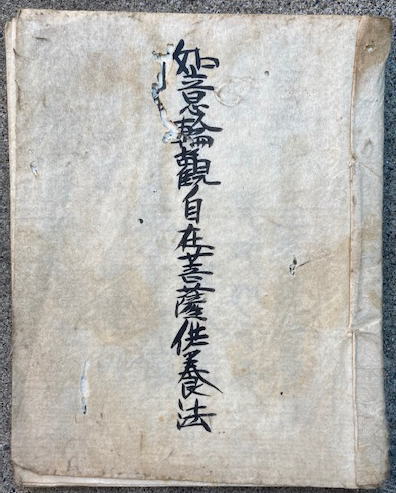 如意輪觀自在菩薩供養法